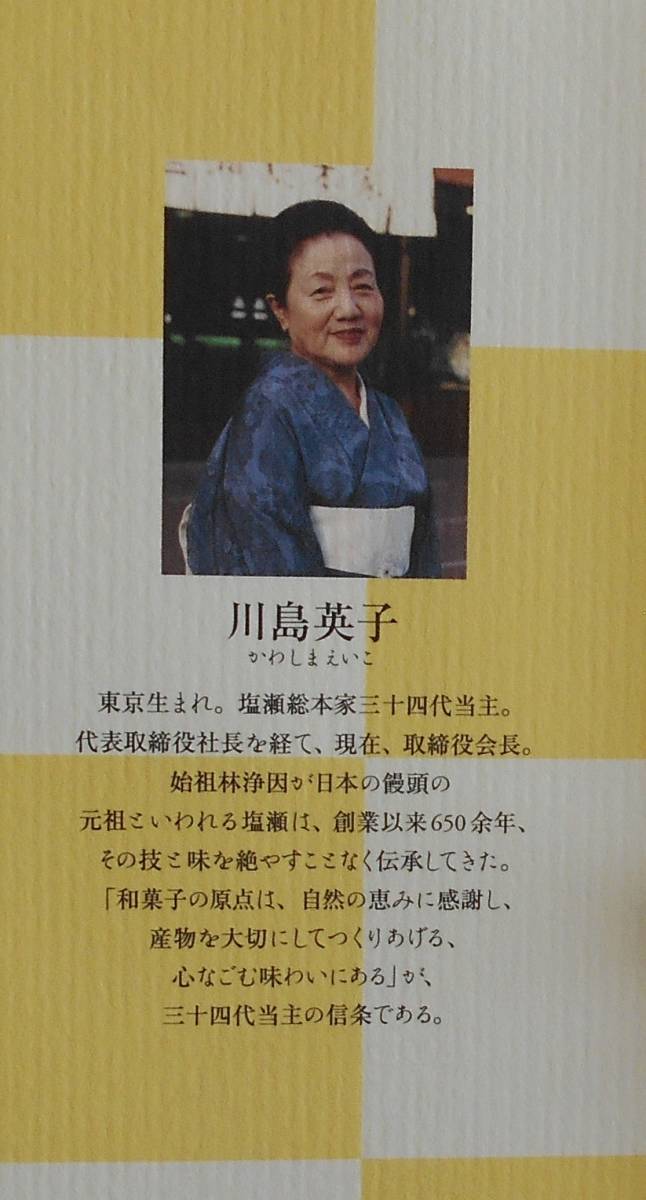 川島英子
かわしまえいこ
東京生まれ。塩瀬総本家三十四代当主。
代表取締役社長を経て、現在、取締役会長。
始祖林浄因が日本の饅頭の
元祖といわれる塩瀬は、創業以来650余年、
その技と味を絶やすことなく伝承してきた。
「和菓子の原点は、自然の恵みに感謝し、
産物を大切にしてつくりあげる、
心なごむ味わいにある」が、
三十四代当主の信条である。